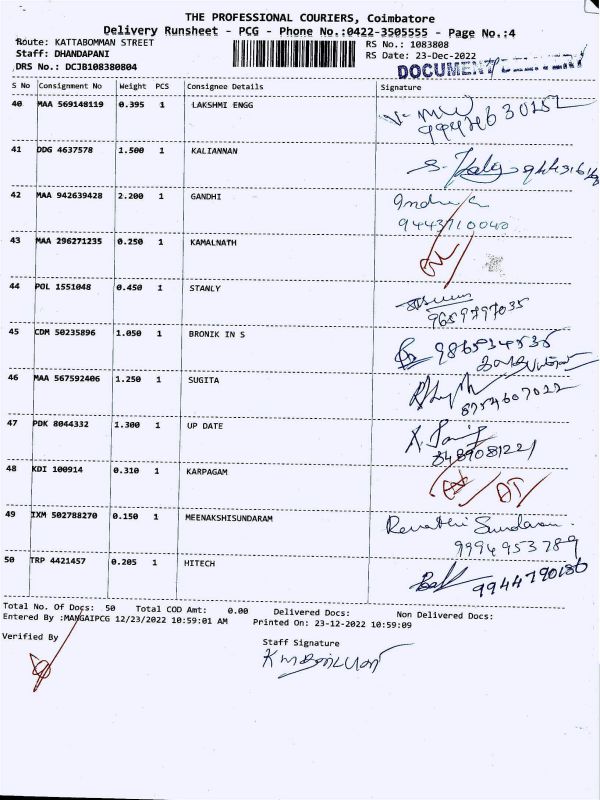 THE PROFESSIONAL COURIERS, Coimbatore
Delivery Runsheet - PCG - Phone No.:0422-3505555 - Page No.:4
Route: KATTABOMMAN STREET RS No.: 1083808
Staff: DHANDAPANI RS Date: 23-Dec-2022
DRS No.: DCJB108380804 DOCUMENT DELIVERY
S No Consignment No Weight PCS Consignee Details Signature
40 MAA 569148119 0.395 1 LAKSHMI ENGG
41 DDG 4637578 1.500 1 KALIANNAN
42 MAA 942639428 2.200 1 GANDHI
9443710040
43 MAA 296271235 0.250 1 KAMALNATH
44 POL 1551048 0.450 1 STANLY
9689797035
45 CDM 50235896 1.050 1 BRONIK IN S
46 MAA 567592406 1.250 1 SUGITA
8754607022
47 PDK 8044332 1.300 1 UP DATE
8489081221
48 KDI 100914 0.310 1 KARPAGAM
49 IXM 502788270 0.150 1 MEENAKSHISUNDARAM Revathi Sundaram.
9994953789
50 TRP 4421457 0.205 1 HITECH
Total No. Of Docs: 50 Total COD Amt: 0.00 Delivered Docs: Non Delivered Docs:
Entered By :MANGAIPCG 12/23/2022 10:59:01 AM Printed On: 23-12-2022 10:59:09
Verified By Staff Signature